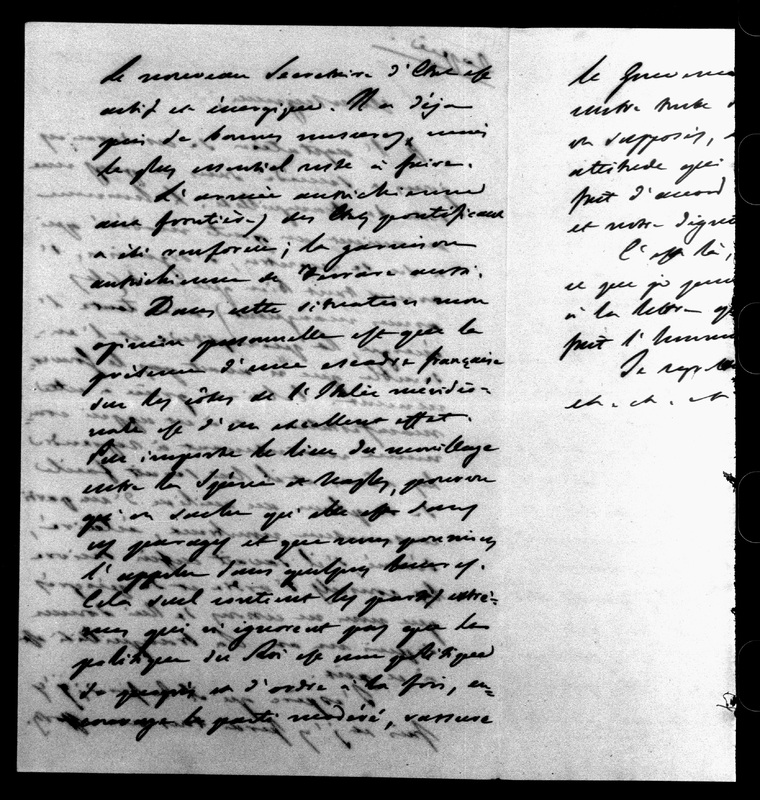 Le nouveau Secrétaire d'Etat est
actif et énergique. Il a déjà
pris de bonnes mesures, mais
le plus essentiel reste à faire.
L'armée autrichienne
aux frontières des Etats pontificaux
a été renforcée; la garnison
autrichienne de Ferrare aussi.
Dans cette situation mon
opinion personnelle est que la
présence d'une escadre française
sur les côtes de l'Italie méridio-
nale est d'un excellent effet.
Peu importe le lieu du mouillage
entre la Spézia et Naples, pourvu
qu'on sache qu'elle est dans
ces parages et que nous pouvons
l'appeler dans quelques heures.
Cela seul contient les partis extrê-
mes qui n'ignorent pas que la
politique du Roi est une politique
de progrès et d'ordre à la fois, en-
courage le parti modéré, rassure
le Gouverne
entre toute
on supposés,
attitude qui
fait d'accord
et notre digni
C'est là,
ce que je
à la lettre
fait l'homme
Je
et. et. et